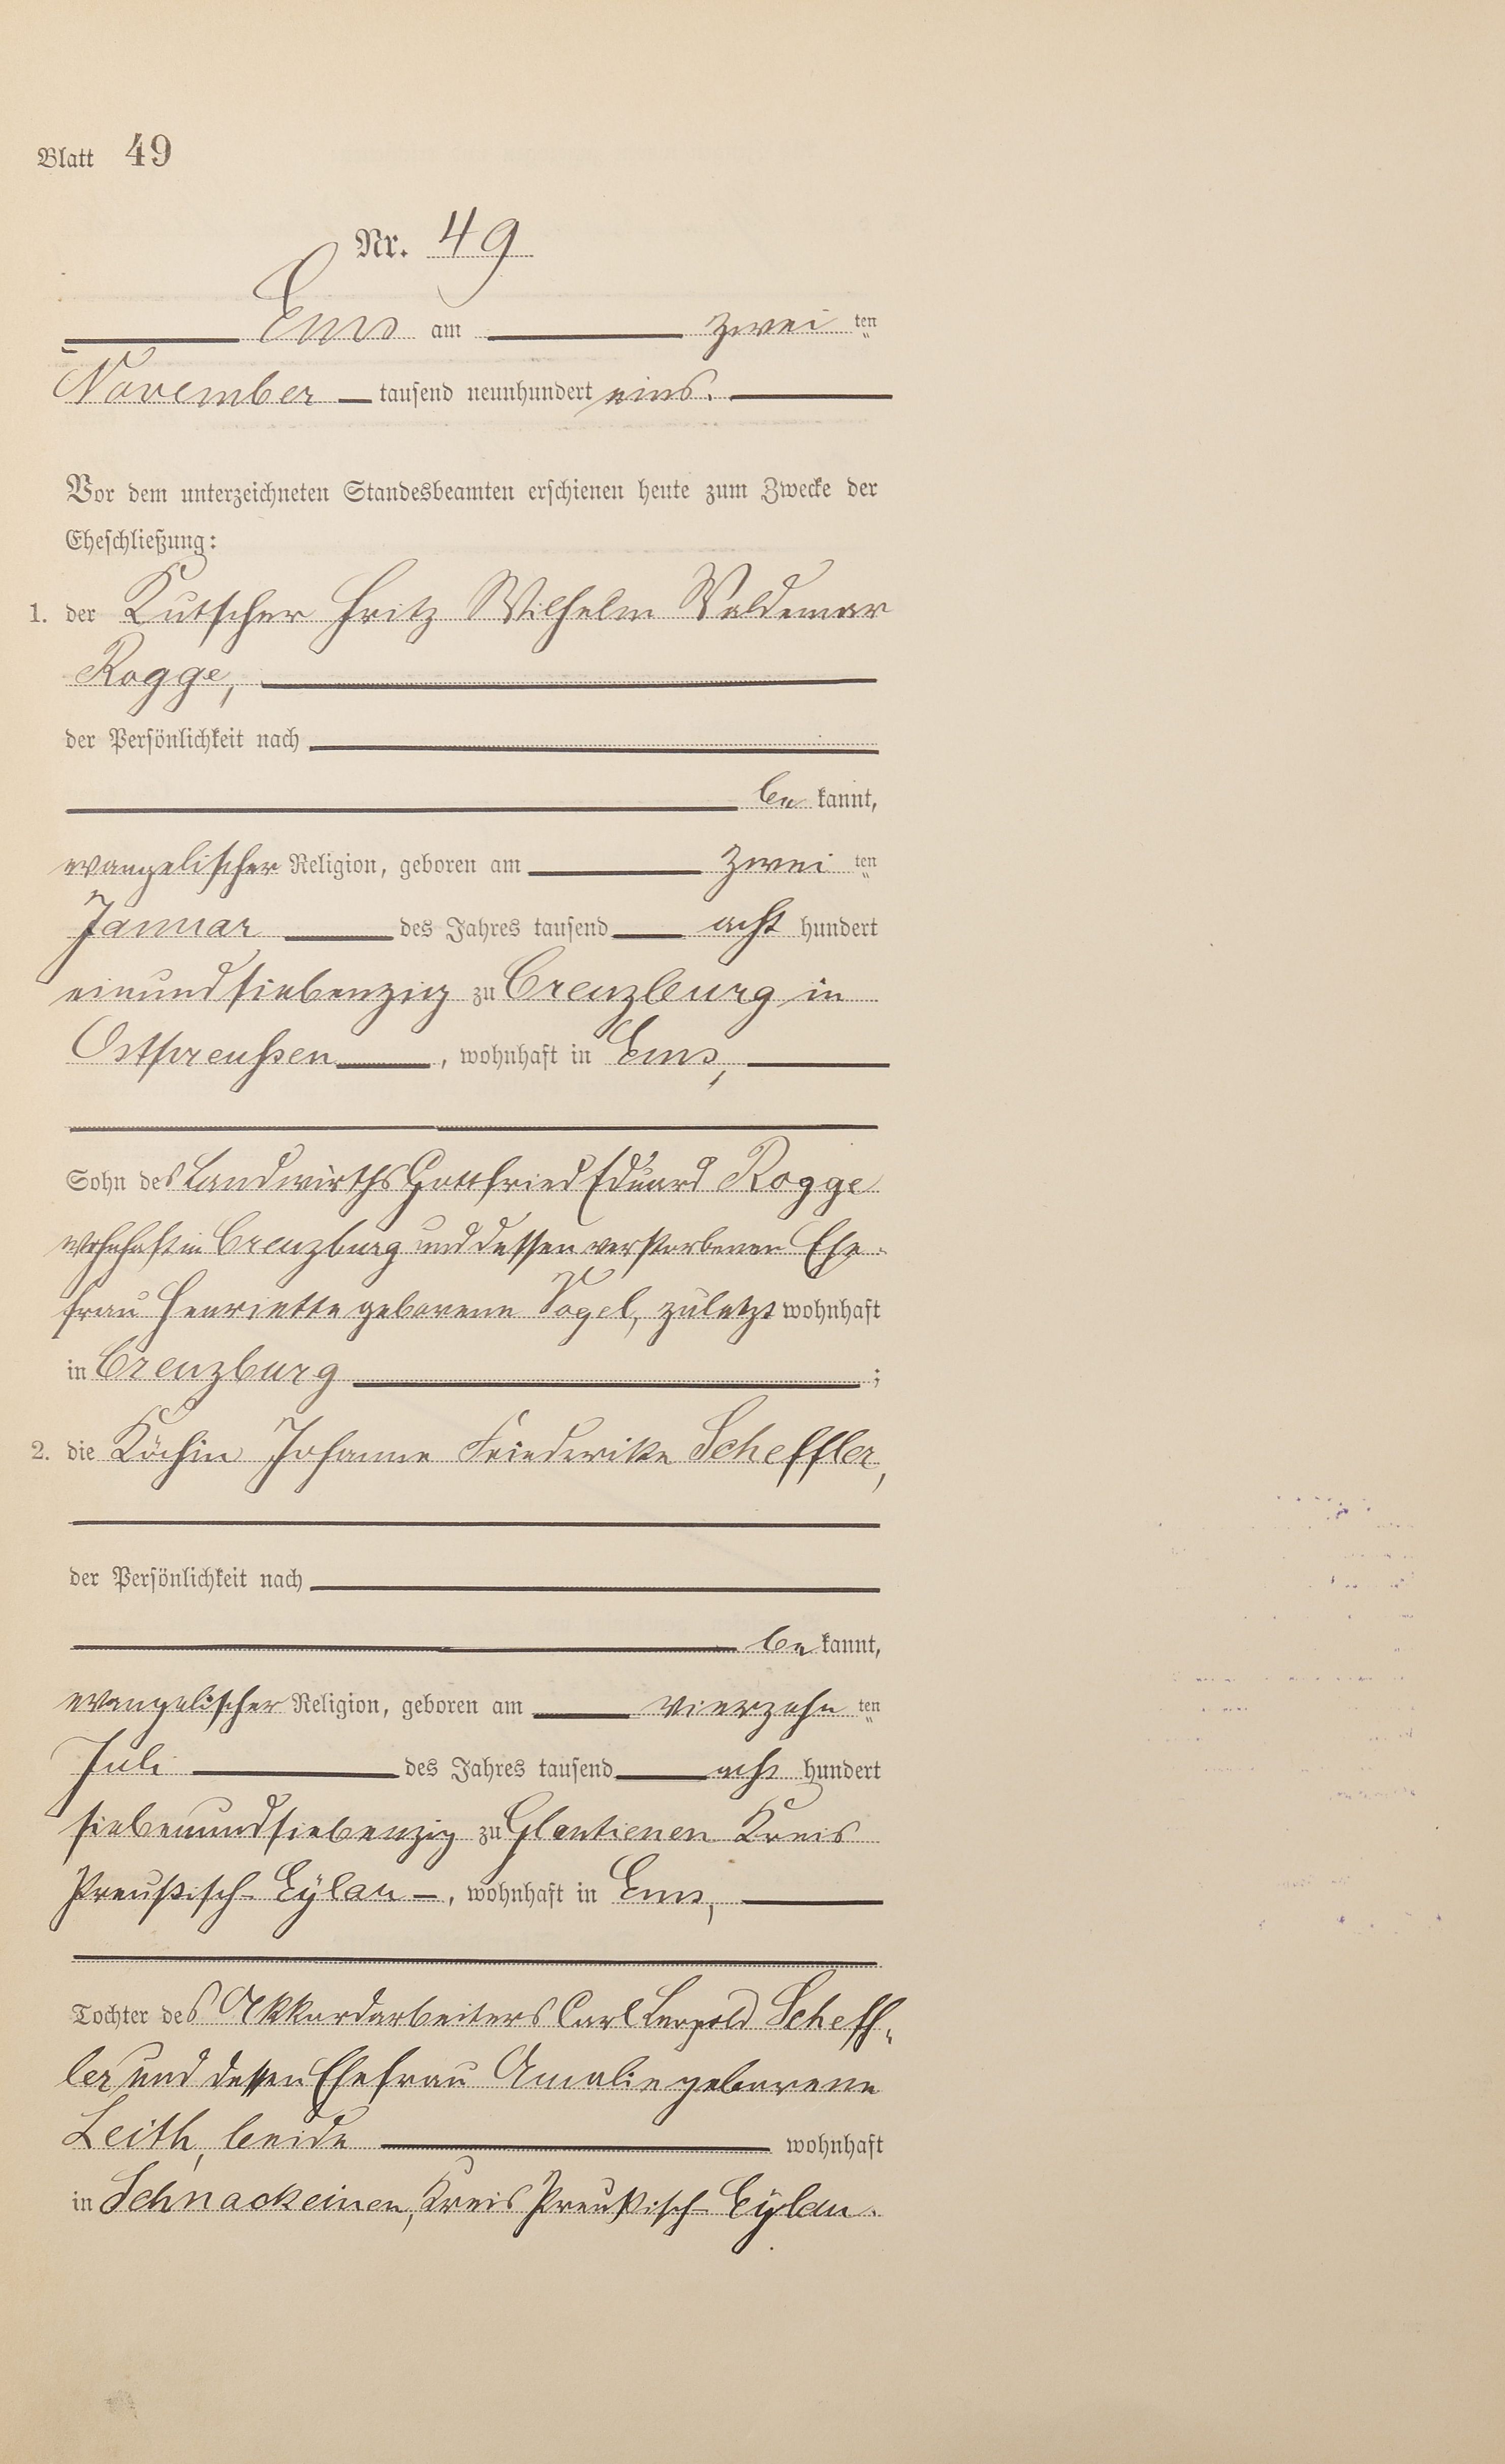 Blatt 49
Nr. 49
Ems am zwei ten
November tausend neunhundert eins.
Vor dem unterzeichneten Standesbeamten erschienen heute zum Zwecke der
Eheschließung:
1. der Kutscher Fritz Wilhelm Waldemar
Rogge,
der Persönlichkeit nach
be kannt,
evangelischer Religion, geboren am zwei ten
Januar des Jahres tausend acht hundert
einundsiebenzig zu Creuzburg in
Ostpreußen, wohnhaft in Ems,
Sohn des Landwirths Gottfried Eduard Rogge
wohnhaft in Creuzburg und dessen verstorbenen Ehe-
frau Henriette geborene Vogel, zuletzt wohnhaft
in Creuzburg ;
2. die Köchin Johanne Friederike Scheffler,
der Persönlichkeit nach
be kannt,
evangelischer Religion, geboren am vierzehn ten
Juli des Jahres tausend acht hundert
siebenundsiebenzig zu Glantienen Kreis
Preußisch-Eylau, wohnhaft in Ems,
Tochter des Akkordarbeiters Carl Leopold Scheff-
ler und dessen Ehefrau Amalie geborene
Leith, beide wohnhaft
in Schnackeinen, Kreis Preußisch-Eylau.